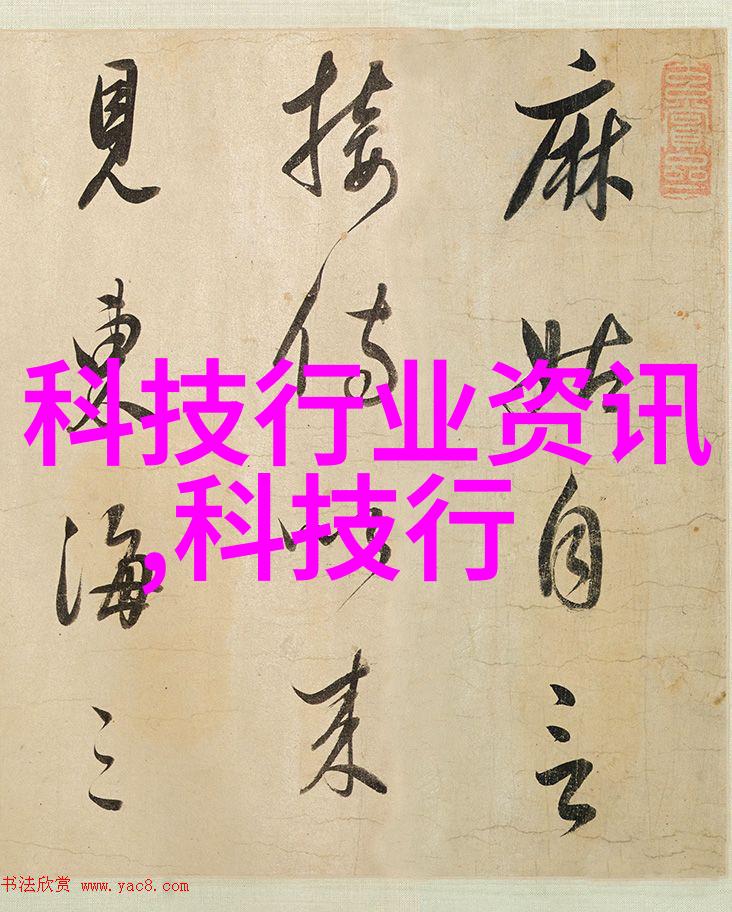 麻姑自言
接侍以来
見東海三
科技行业资讯
,科技行
书法欣赏 www.yac8.com